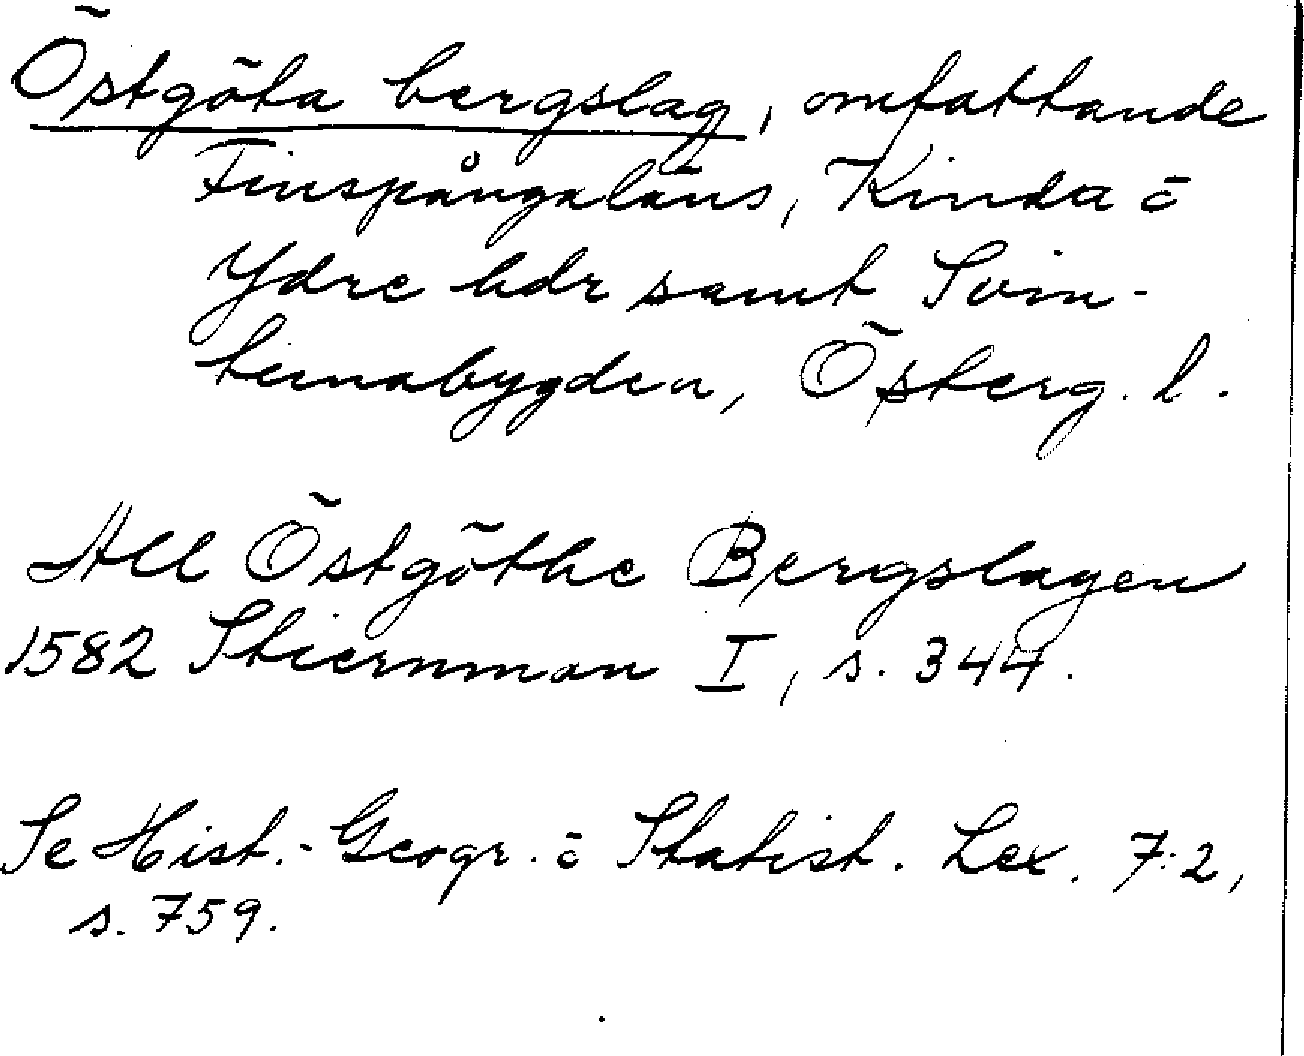 Östgöta bergslag, omfattande
Finspångaläns, Kinda o
Ydre hdr samt Svin-
hunabygden, Österg. l.
All Östgöthe Bergslagen
1582 Stiernman I, s. 344.
Se Hist.-Geogr. o Statist. Lex. 7:2,
s. 759.